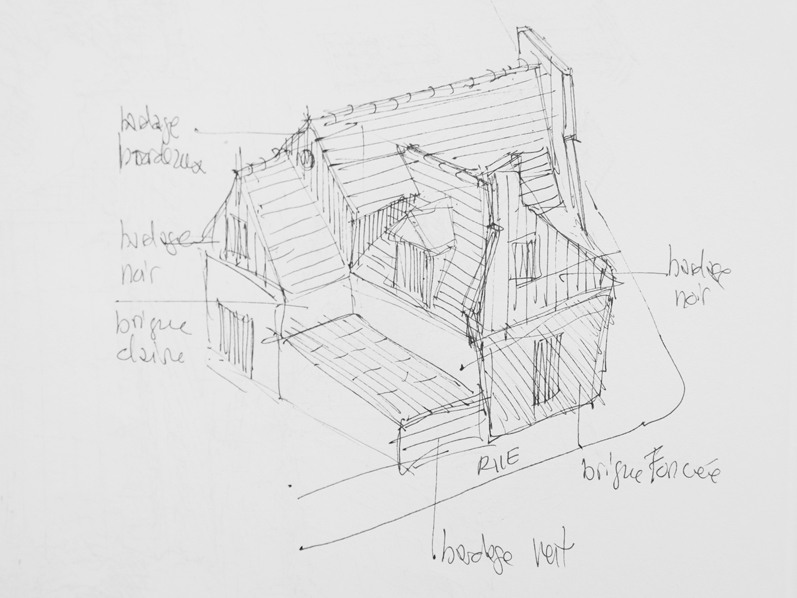 bardage
bordeaux
bardage
noir
brique
claire
bardage
noir
RUE
brique Foncée
bardage vert